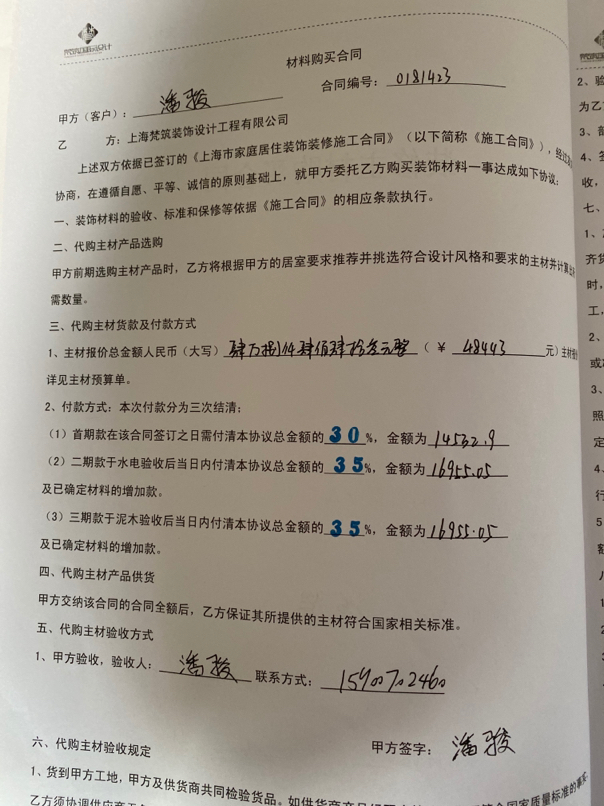 材料购买合同
合同编号：0181423
甲方（客户）：潘骏
乙 方：上海梵筑装饰设计工程有限公司
上述双方依据已签订的《上海市家庭居住装饰装修施工合同》（以下简称《施工合同》），经过
协商，在遵循自愿、平等、诚信的原则基础上，就甲方委托乙方购买装饰材料一事达成如下协议：
一、装饰材料的验收、标准和保修等依据《施工合同》的相应条款执行。
二、代购主材产品选购
甲方前期选购主材产品时，乙方将根据甲方的居室要求推荐并挑选符合设计风格和要求的主材并计算出所
需数量。
三、代购主材货款及付款方式
1、主材报价总金额人民币（大写）肆万捌仟肆佰肆拾叁元整（￥ 48443 元）主材报价
详见主材预算单。
2、付款方式：本次付款分为三次结清；
（1）首期款在该合同签订之日需付清本协议总金额的30%，金额为14532.9
（2）二期款于水电验收后当日内付清本协议总金额的35%，金额为16955.05
及已确定材料的增加款。
（3）三期款于泥木验收后当日内付清本协议总金额的35%，金额为16955.05
及已确定材料的增加款。
四、代购主材产品供货
甲方交纳该合同的合同全额后，乙方保证其所提供的主材符合国家相关标准。
五、代购主材验收方式
1、甲方验收，验收人：潘骏 联系方式：15900702460
甲方签字：潘骏
六、代购主材验收规定
1、货到甲方工地，甲方及供货商共同检验货品。如供货商产品
国家质量标准的事实，
乙方须协调供应商
2、验
为乙
3、
4、签
收，
七、
1、
齐货
时，
工，
2、
或
3、
照
定
4、
行
5